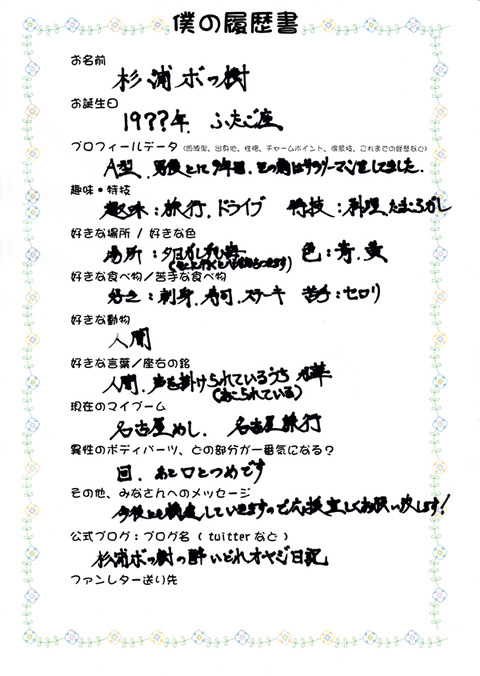 僕の履歴書
お名前
杉浦ボッ樹
お誕生日
19??年 ふたご座
プロフィールデータ (血液型、出身地、性格、チャームポイント、得意技、これまでの経歴など)
A型、男優とに9年目、その前はサラリーマンをしてました。
趣味・特技
趣味:旅行、ドライブ 特技:料理、たまころがし
好きな場所 / 好きな色
場所:夕日がしずむ 色:青、黄
好きな食べ物/苦手な食べ物
好き:刺身、寿司、ステーキ 苦手:セロリ
好きな動物
人間
好きな言葉/座右の銘
人間、声を掛けられているうち が華
(おこられている)
現在のマイブーム
名古屋めし、名古屋旅行
異性のボディパーツ、どの部分が一番気になる?
目、あと口とつめです
その他、みなさんへのメッセージ
今後とも していきますので応援宜しくお願い致します!
公式ブログ:ブログ名 ( twitterなど )
杉浦ボッ樹の酔いどれオヤジ日記
ファンレター送り先